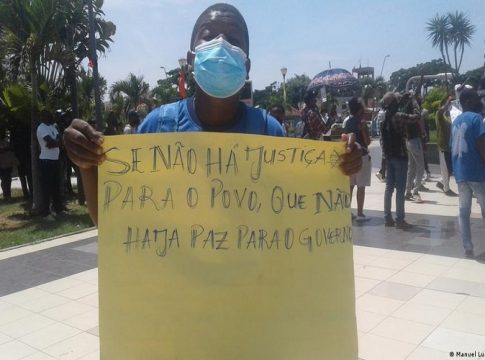 SE NÃO HÁ JUSTIÇA
PARA O POVO, QUE NÃO
HAJA PAZ PARA O GOVERNO
© Manuel Lu